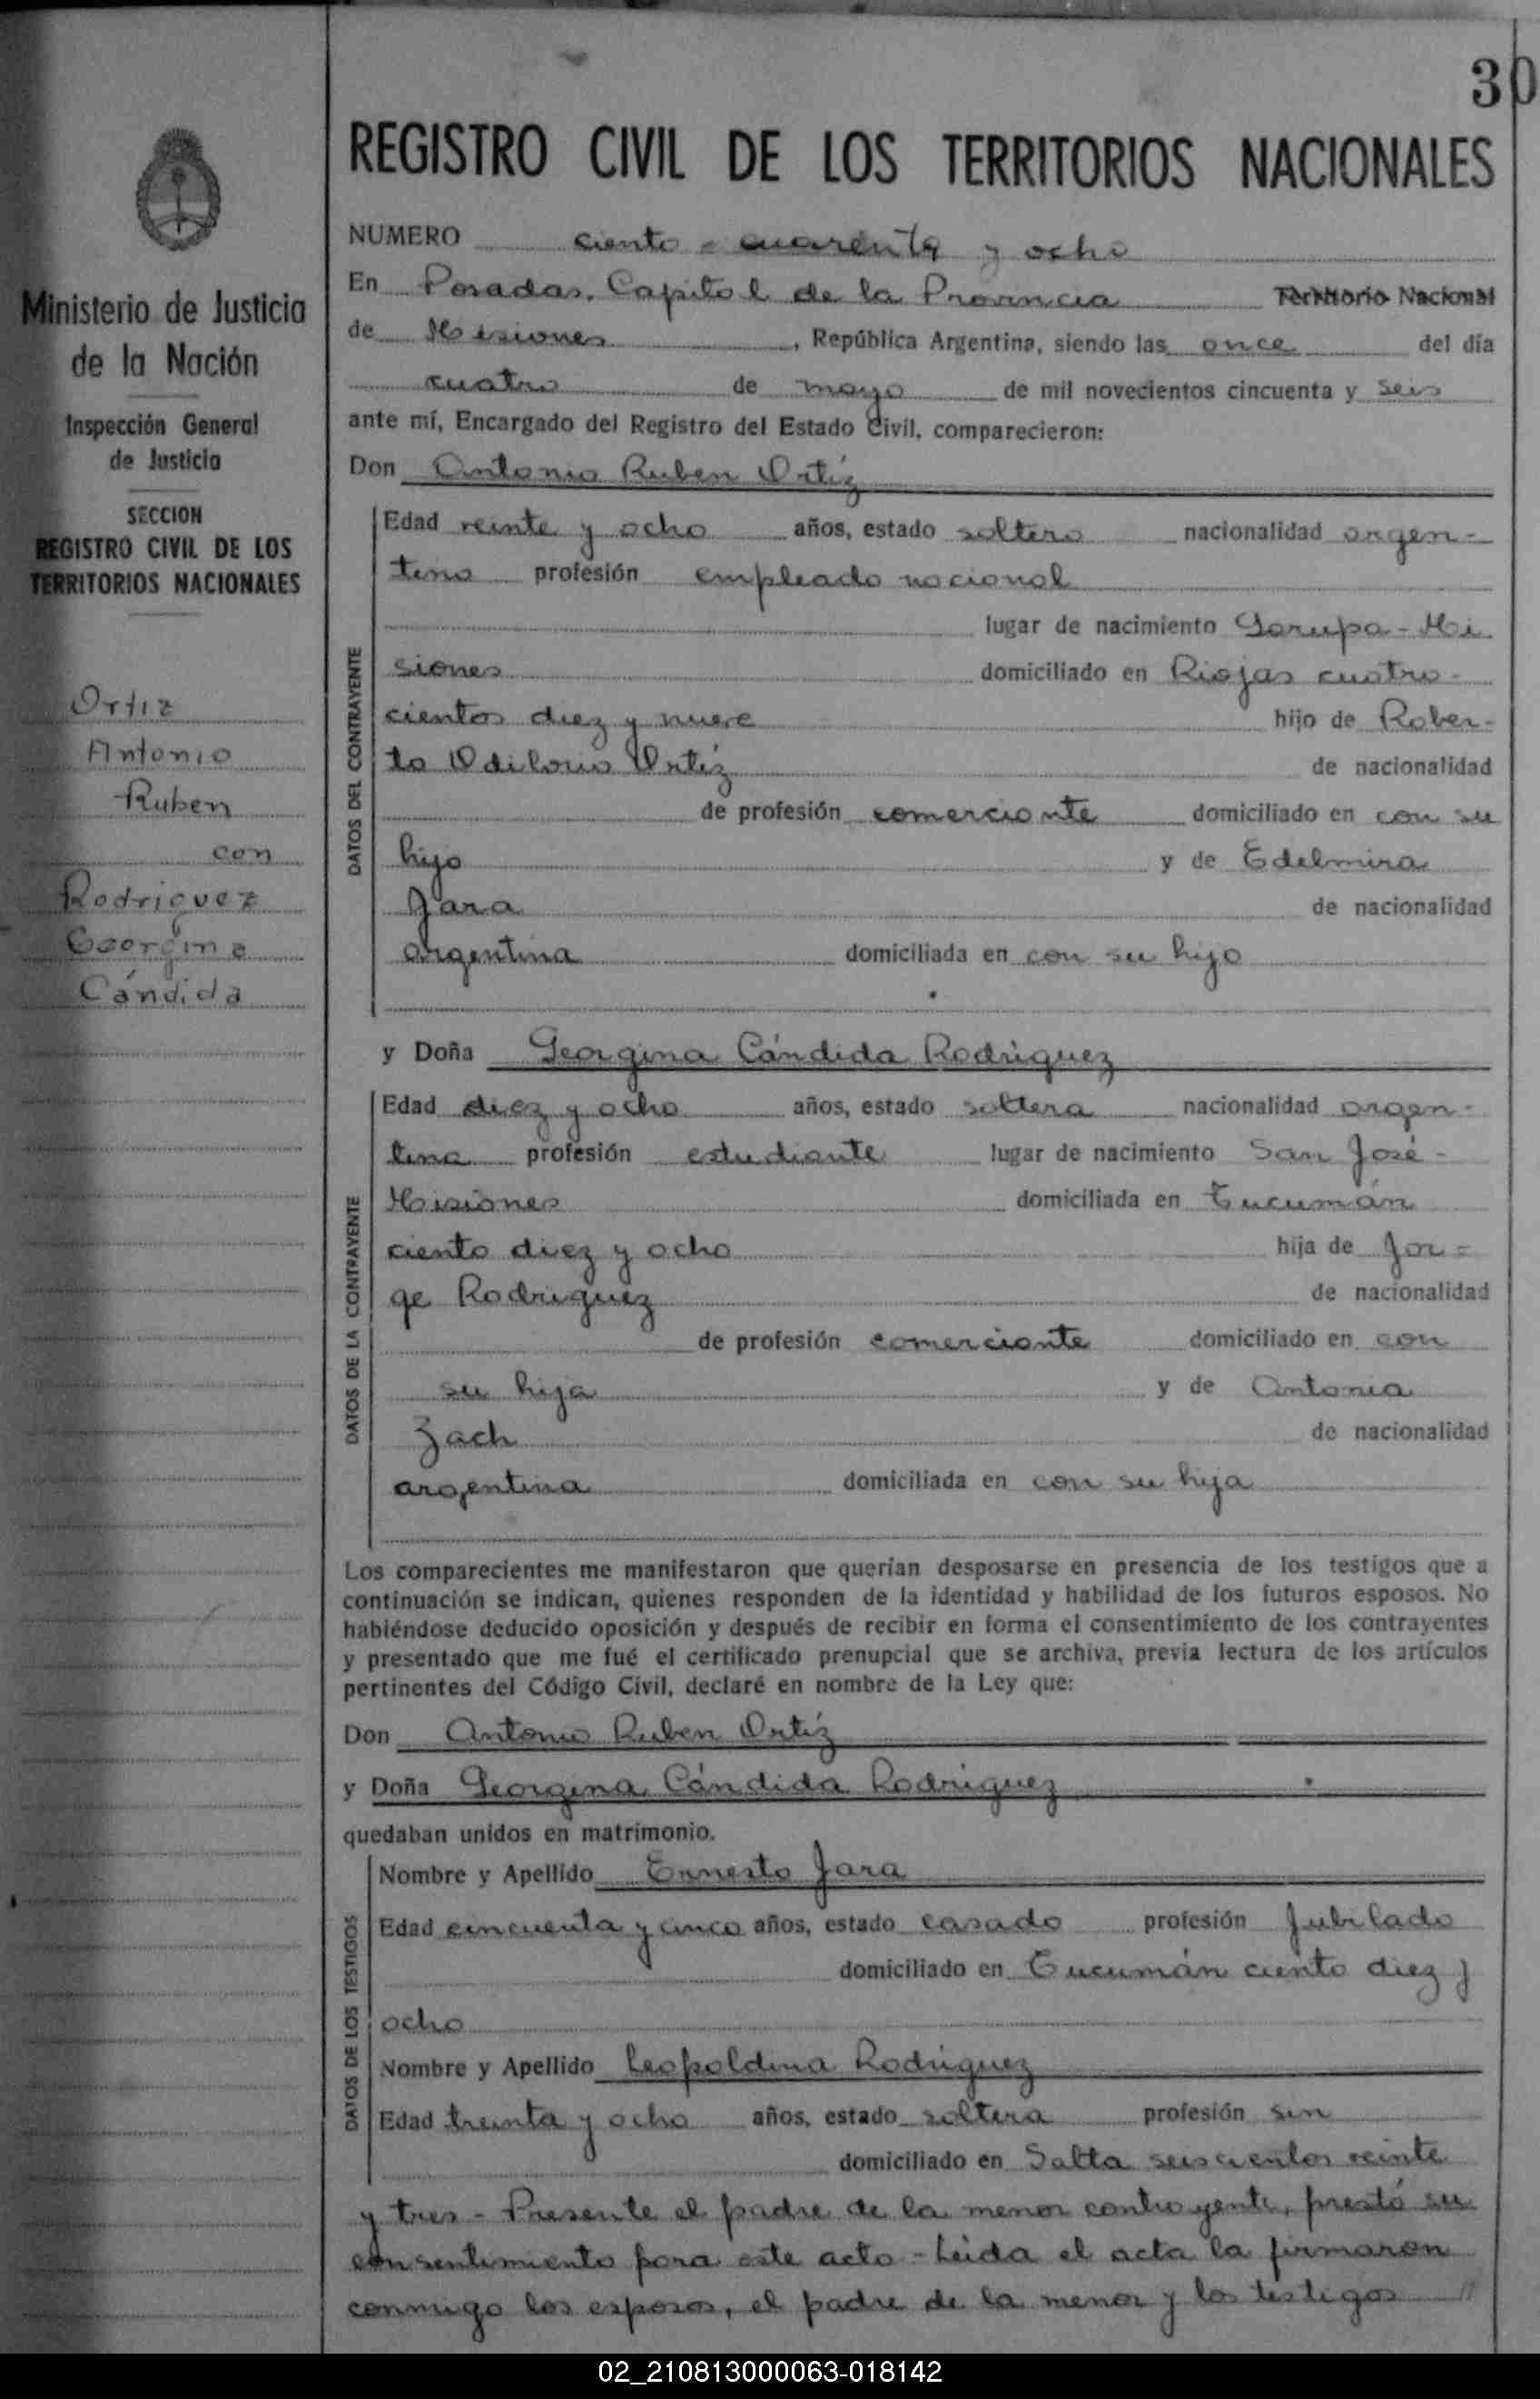 30
Ministerio de Justicia
de la Nación
Inspección General
de Justicia
SECCION
REGISTRO CIVIL DE LOS
TERRITORIOS NACIONALES
Ortiz
Antonio
Ruben
con
Rodriguez
Georgina
Cándida
REGISTRO CIVIL DE LOS TERRITORIOS NACIONALES
NUMERO ciento - cuarenta y ocho
En Posadas, Capital de la Provincia Territorio Nacional
de Misiones, República Argentina, siendo las once del día
cuatro de mayo de mil novecientos cincuenta y seis
ante mí, Encargado del Registro del Estado Civil, comparecieron:
Don Antonio Ruben Ortíz
DATOS DEL CONTRAYENTE
Edad veinte y ocho años, estado soltero nacionalidad argen-
tino profesión empleado nacional
lugar de nacimiento Garupa - Mi
siones domiciliado en Riojas cuatro-
cientos diez y nueve hijo de Rober-
to Odilono Ortíz de nacionalidad
de profesión comerciante domiciliado en con su
hijo y de Edelmira
Jara de nacionalidad
argentina domiciliada en con su hijo
y Doña Georgina Cándida Rodríguez
DATOS DE LA CONTRAYENTE
Edad diez y ocho años, estado soltera nacionalidad argen-
tina profesión estudiante lugar de nacimiento San José -
Misiones domiciliada en Tucumán
ciento diez y ocho hija de Jor=
ge Rodríguez de nacionalidad
de profesión comerciante domiciliado en con
su hija y de Antonia
Zach de nacionalidad
argentina domiciliada en con su hija
Los comparecientes me manifestaron que querían desposarse en presencia de los testigos que a
continuación se indican, quienes responden de la identidad y habilidad de los futuros esposos. No
habiéndose deducido oposición y después de recibir en forma el consentimiento de los contrayentes
y presentado que me fué el certificado prenupcial que se archiva, previa lectura de los artículos
pertinentes del Código Civil, declaré en nombre de la Ley que:
Don Antonio Ruben Ortíz
y Doña Georgina Cándida Rodríguez
quedaban unidos en matrimonio.
DATOS DE LOS TESTIGOS
Nombre y Apellido Ernesto Jara
Edad cincuenta y cinco años, estado casado profesión Jubilado
domiciliado en Tucumán ciento diez y
ocho
Nombre y Apellido Leopoldina Rodríguez
Edad treinta y ocho años, estado soltera profesión sin
domiciliado en Salta seiscientos veinte
y tres - Presente el padre de la menor contrayente, prestó su
consentimiento para este acto - Leida el acta la firmaron
conmigo los esposos, el padre de la menor y los testigos //
02_210813000063-018142